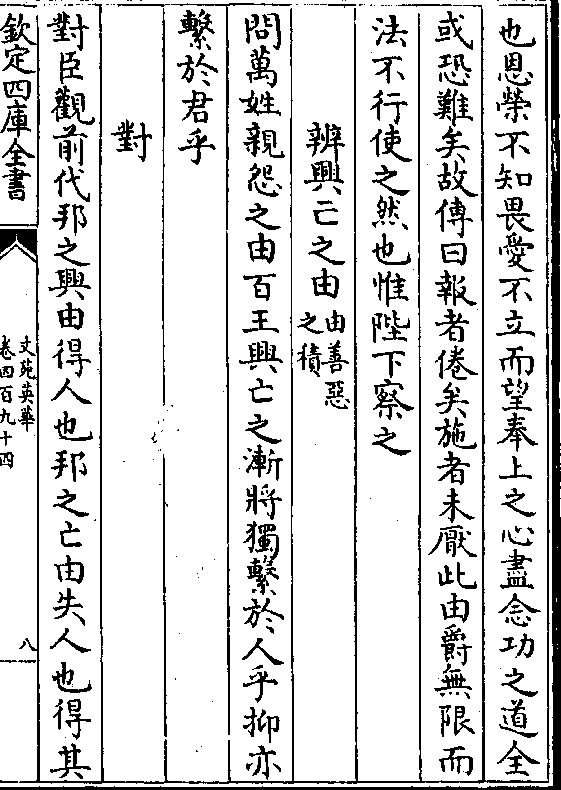 也恩榮不知畏愛不立而望奉上之心盡念功之道全
或恐難矣故傳曰報者倦矣施者未厭此由爵無限而
法不行使之然也惟陛下察之
辨興亡之由由善惡之積
問萬姓親怨之由百王興亡之漸將獨繫於人乎抑亦
繫於君乎
對
對臣觀前代邦之興由得人也邦之亡由失人也得其
欽定四庫全書
文苑英華
卷四百九十四
八